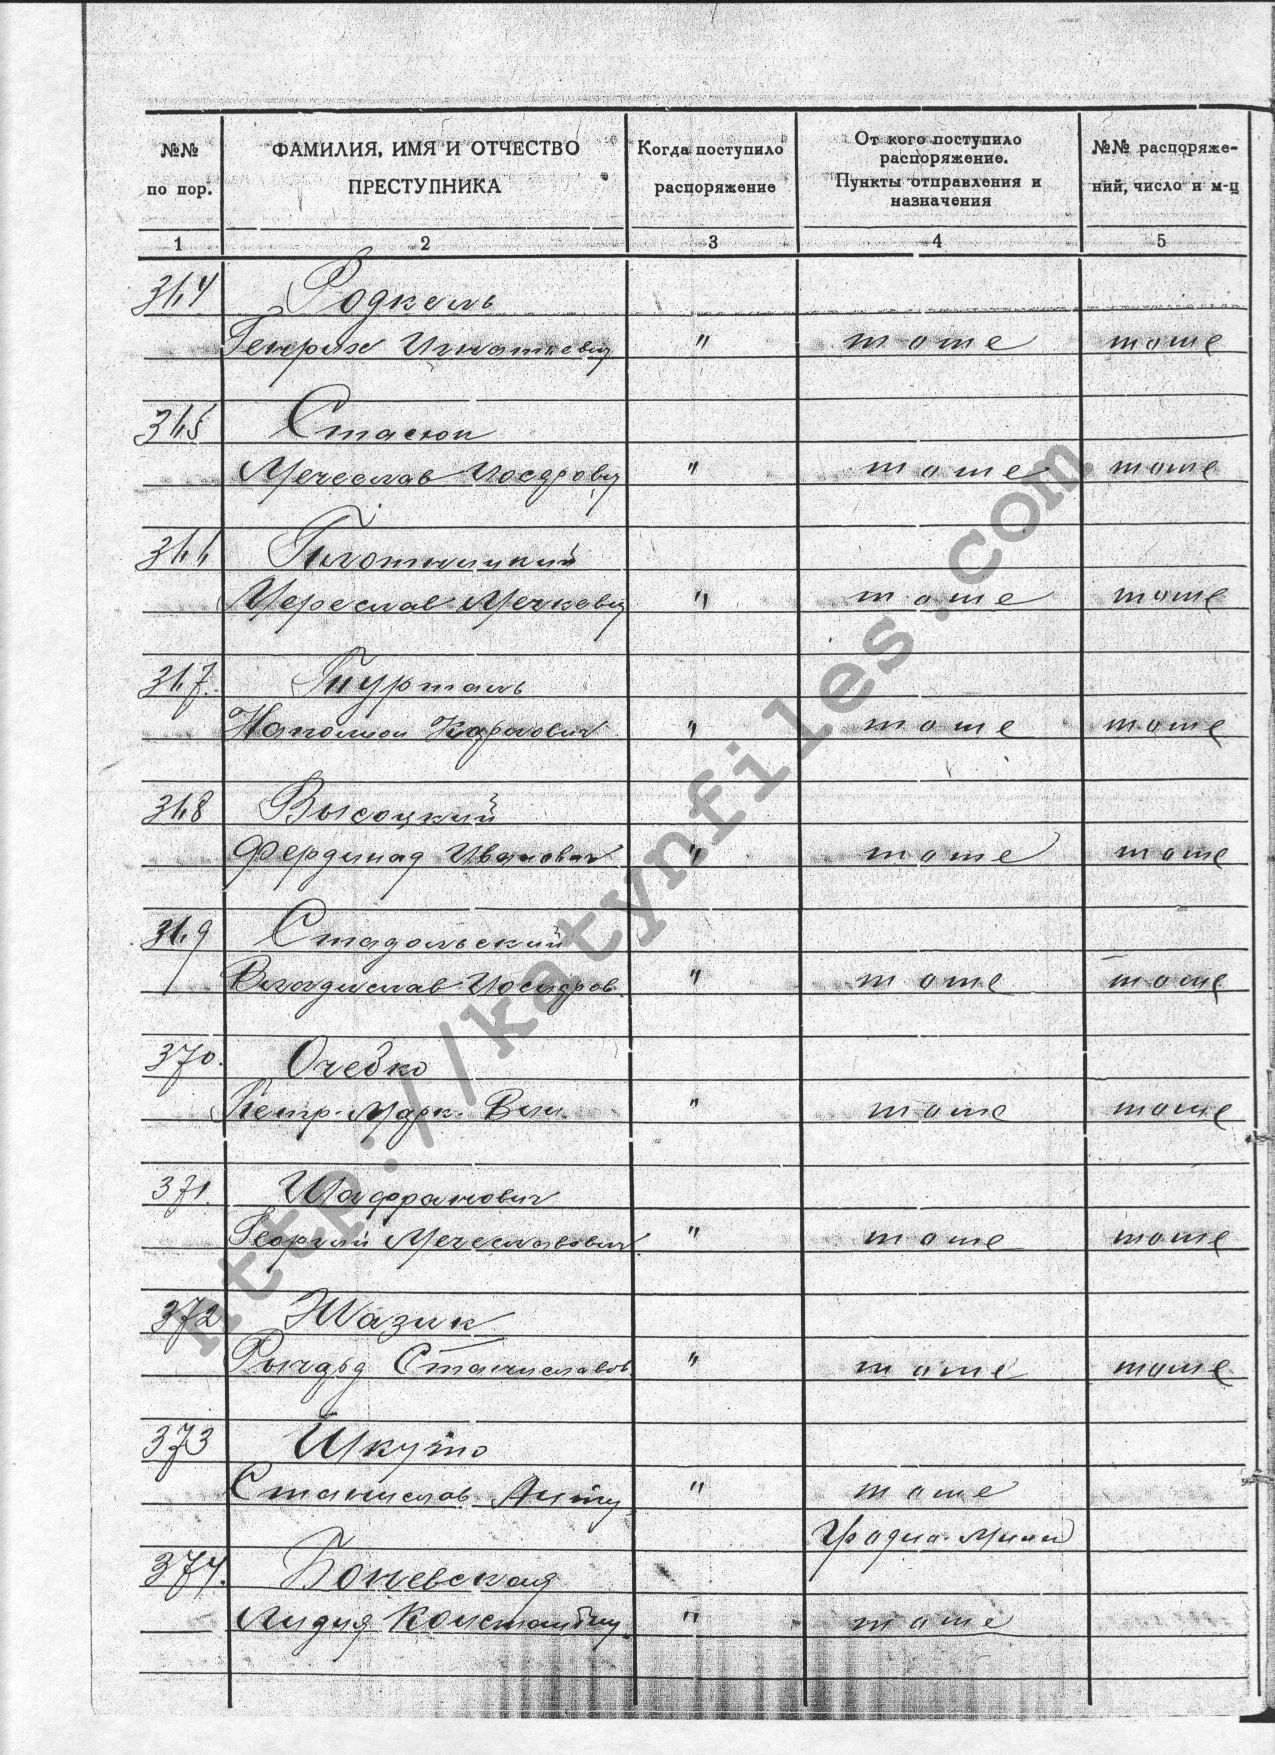 №№ по пор.
ФАМИЛИЯ, ИМЯ И ОТЧЕСТВО ПРЕСТУПНИКА
Когда поступило распоряжение
От кого поступило распоряжение. Пункты отправления и назначения
№№ распоряжений, число и м-ц
1 2 3 4 5
364 Родкель
Генрих Игнатьевич " тоже тоже
365 Стасюк
Мечеслав Иосифович " тоже тоже
366 Плотницкий
Мечкович " тоже тоже
367. Пурталь
Наполион Карлович " тоже тоже
368 Высоцкий
Фердинад Иванович " тоже тоже
369 Стадольский
Владислав Иосифов. " тоже тоже
370. Очебко
Петр-Марк. Вик. " тоже тоже
371. Шафранович
Георгий Мечеславович " тоже тоже
372 Жазик
Рычард Станиславов. " тоже тоже
373 Шкуто
Станислав " тоже
374.
Лидия " тоже
http://katynfiles.com